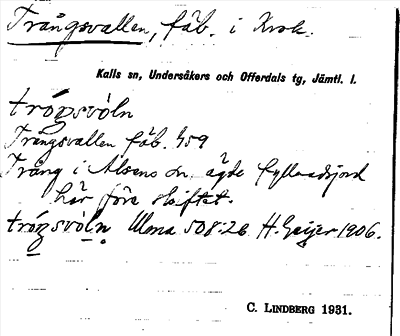 Trångsvallen, fäb. i Krok.
Kalls sn, Undersåkers och Offerdals tg, Jämtl. l.
tróŋsvòln
Trångsvallen fäb. 459
Trång i Alsens sn ägde fyllnadsjord
här före skiftet.
tróŋsvòln Ulma 508:26 H. Geijer 1906.
C. LINDBERG 1931.